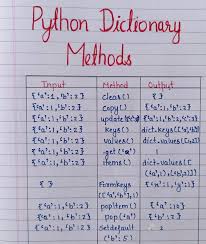 Python Dictionary
Methods
Input Method Output
{'a':1,'b':2} clear() { }
{'a':1,'b':2} copy() {'a':1,'b':2}
{'a':1,'b':2} update() {'a':1,'b':2,
{'a':1,'b':2} keys() dict_keys(['a','b'])
{'a':1,'b':2} values() dict_values([1,2])
{'a':1,'b':2} get('a') 1
{'a':1,'b':2} items() dict_values([
('a',1),('b',2)])
{ } Fromkeys
popitem()
{'a':1,'b':2} pop('a') {'b':2}
{'a':1,'b':2} setdefault
('b':5) 2